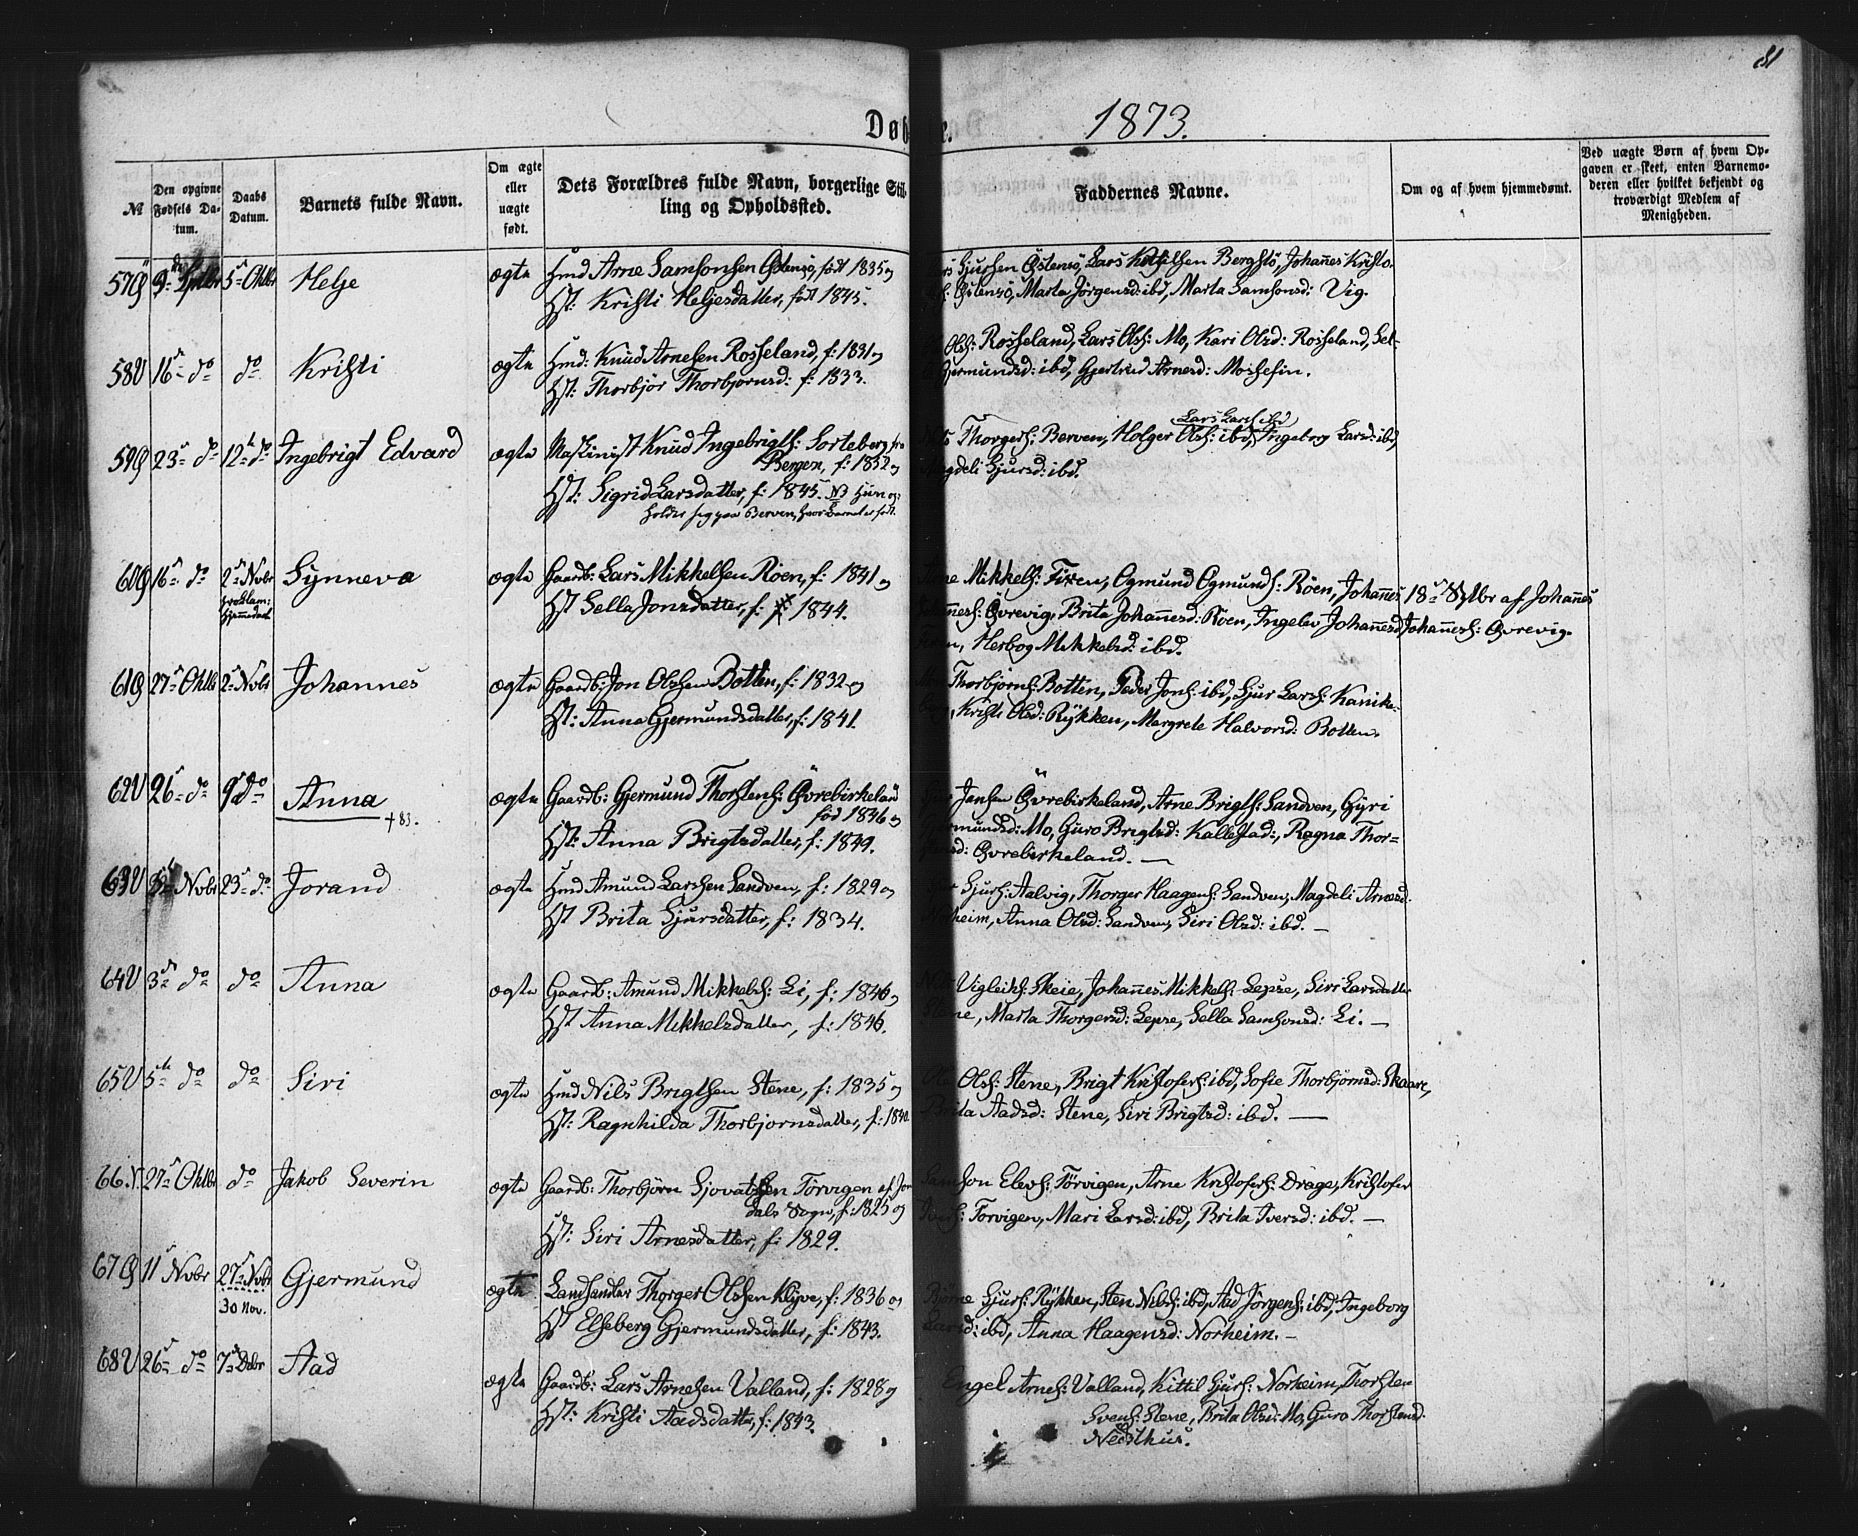 81
Døb e. 1873.
№
Den opgivne Fødsels Datum.
Daabs Datum.
Barnets fulde Navn.
Om ægte eller uægte født.
Dets Forældres fulde Navn, borgerlige Stilling og Opholdssted.
Faddernes Navne.
Om og af hvem hjemmedøbt.
Ved uægte Børn af hvem Opgaven er skeet, enten Barnemoderen eller hvilket bekjendt og troværdigt Medlem af Menigheden.
57 Sptbr 5 Oktbr Helje ægte Hmd Arne Samsonsen Østensø, født 1835 og
Hst: Kristi Heljesdatter, født 1845.
Sjursen Østensø, Lars Bergstø, Johañes Kristo-
Østensø, Marta Jørgensd: ibd, Marta Samsonsd: Vig.
58 16 do do Kristi ægte Hmd: Knud Arnesen Rosseland, f: 1831 og
Hst: Thorbjør Thorbjørnsd: f: 1833.
Ols: Rosseland, Lars Ols: Mo, Kari Olsd: Rosseland, Sel-
Gjermundsd: ibd, Gjertrud Arnesd: Mosesin.
59 23 do 12 do Ingebrigt Edvard ægte Maskinist Knud Ingebrigts: Sorteberg fra
Bergen, f: 1852 og
Hst: Sigrid Larsdatter, f: 1845. NB Hun op-
holder seg paa Berven, hvor Barnet er født.
Lars Lars ibd
Thorgers: Berven, Holger Ols: ibd, Ingeborg Larsd: ibd,
Magdeli Sjursd: ibd.
60 16 do 2 Novbr Synneva ægte Gaardb: Lars Mikkelsen Røen, f: 1841 og
Hst Sella Jonsdatter, f: 1844.
Arne Mikkels: Fixen, Ogmund Ogmunds: Røen, Johañes
Øvrevig, Brita Johañesd: Røen, Ingelev Johañesd
Herbog Mikkelsd: ibd.
18 Sptbr af Johañes
Johañes: Øvrevig.
61 27 Oktb 2 Novbr Johannes ægte Gaardb: Jon Olssen Botten, f: 1832 og
Hst: Anna Gjermundsdatter, f: 1841.
Thorbjørns: Botten, Peder Jons: ibd, Sjur Lars: Kanike-
Kristi Olsd: Rykken, Margrete Halvorsd: Botten.
62 26 do 9 do Anna +83. ægte Gaardb: Gjermund Thorstens: Øvrebirkeland
fød 1846 og
Hst: Anna Brigtsdatter, f: 1849.
Jansen Øvrebirkeland, Arne Brigts: Sandven, Gyri
Gjermundsd: Mo, Guro Brigtsd: Kallestad, Ragna Thor-
Øvrebirkeland. —
63 Novbr 23 do Jorand ægte Hmd Amund Larssen Sandven, f: 1829 og
Hst Brita Sjursdatter, f: 1834.
Sjurs: Aalvig, Thorger Haagens: Sandven, Magdeli Arnesd:
Norheim, Anna Olsd: Sandven, Siri Olsd: ibd. —
64 3 do do Anna ægte Gaardb: Amund Mikkels: Li, f: 1846 og
Hst Anna Mikkelsdatter, f: 1846.
Vigleiks: Skeie, Johañes Mikkels: Lepse, Siri Larsdatter
Stene, Marta Thorgersd: Lepse, Sella Samsonsd: Li. —
65 5 do do Siri ægte Hmd Nils Brigtsen Stene, f: 1835 og
Hst: Ragnhilda Thorbjornsdatter, f: 1840.
Ole Ols: Stene, Brigt Kristofers: ibd, Sofie Thorbjørnsd: Skaare,
Brita Aadsd: Stene, Siri Brigtsd: ibd. —
66 27 Oktb do Jakob Severin ægte Gaardb: Thorbjørn Sjovatsen Tørvigen af Jon
dals Sogn, f: 1825 og
Hst: Siri Arnesdatter, f: 1829.
Samson Elevs: Tørvigen, Arne Kristofers: Drage, Kristofer
Torvigen, Mari Larsd: ibd, Brita Iversd: ibd. —
67 11 Novbr 27 Novbr 30 Nov. Gjermund ægte Landhandler Thorger Olssen Klyve, f: 1836 og
Hst Elseberg Gjermundsdatter, f: 1843.
Bjørne Sjurs: Rykken, Sten Nils: ibd, Aad Jørgens: ibd, Ingeborg
Larsd: ibd, Anna Haagensd: Norheim. —
68 26 do 7 Debr Aad ægte Gaardb: Lars Arnesen Valland, f: 1828 og
Hst: Kristi Aadsdatter, f: 1843.
Engel Arnes: Valland, Kittil Sjurs: Norheim, Thorsten
Svens: Stene, Brita Olsd: Mo, Guro Thorstensd:
Nedsthus.